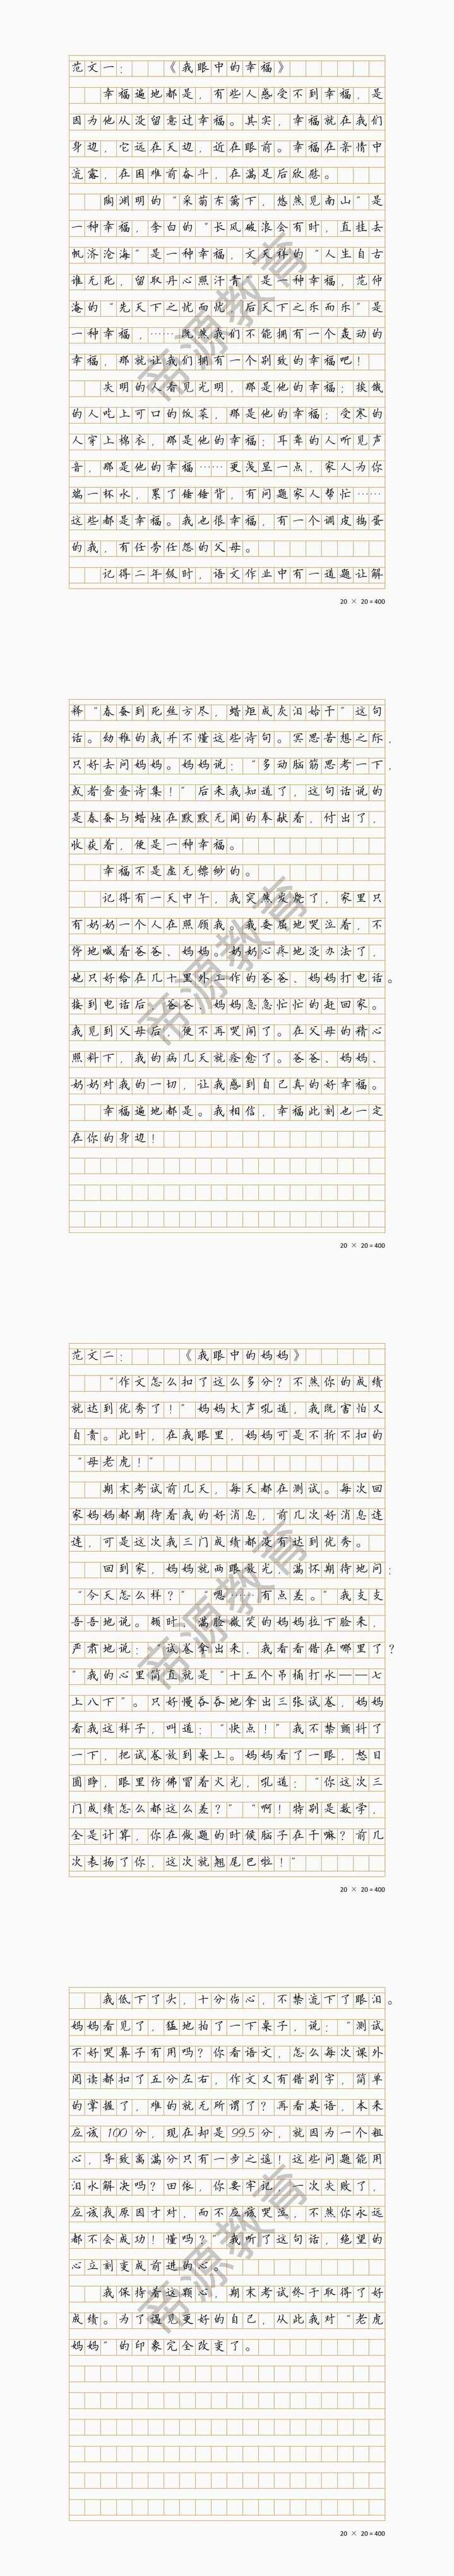 范文一：  《我眼中的幸福》
幸福遍地都是，有些人感受不到幸福，是
因为他从没留意过幸福。其实，幸福就在我们
身边，它远在天边，近在眼前。幸福在亲情中
流露，在困难前奋斗，在满足后欣慰。
陶渊明的“采菊东篱下，悠然见南山”是
一种幸福，李白的“长风破浪会有时，直挂云
帆济沧海”是一种幸福，文天祥的“人生自古
谁无死，留取丹心照汗青”是一种幸福，范仲
淹的“先天下之忧而忧，后天下之乐而乐”是
一种幸福，……既然我们不能拥有一个轰动的
幸福，那就让我们拥有一个别致的幸福吧！
失明的人看见光明，那是他的幸福；挨饿
的人吃上可口的饭菜，那是他的幸福；受寒的
人穿上棉衣，那是他的幸福；耳聋的人听见声
音，那是他的幸福……更浅显一点，家人为你
端一杯水，累了锤锤背，有问题家人帮忙……
这些都是幸福。我也很幸福，有一个调皮捣蛋
的我，有任劳任怨的父母。
记得二年级时，语文作业中有一道题让解
20 × 20 = 400
释“春蚕到死丝方尽，蜡炬成灰泪始干”这句
话。幼稚的我并不懂这些诗句。冥思苦想之际，
只好去问妈妈。妈妈说：“多动脑筋思考一下，
或者查查诗集！”后来我知道了，这句话说的
是春蚕与蜡烛在默默无闻的奉献着，付出了，
收获着，便是一种幸福。
幸福不是虚无缥缈的。
记得有一天中午，我突然发烧了，家里只
有奶奶一个人在照顾我。我委屈地哭泣着，不
停地喊着爸爸、妈妈。奶奶心疼地没办法了，
她只好给在几十里外工作的爸爸、妈妈打电话。
接到电话后，爸爸，妈妈急急忙忙的赶回家。
我见到父母后，便不再哭闹了。在父母的精心
照料下，我的病几天就痊愈了。爸爸、妈妈、
奶奶对我的一切，让我感到自己真的好幸福。
幸福遍地都是。我相信，幸福此刻也一定
在你的身边！
20 × 20 = 400
范文二：  《我眼中的妈妈》
“作文怎么扣了这么多分？不然你的成绩
就达到优秀了！”妈妈大声吼道，我既害怕又
自责。此时，在我眼里，妈妈可是不折不扣的
“母老虎！”
期末考试前几天，每天都在测试。每次回
家妈妈都期待着我的好消息，前几次好消息连
连，可是这次我三门成绩都没有达到优秀。
回到家，妈妈就两眼放光，满怀期待地问：
“今天怎么样？”“嗯……有点差。”我支支
吾吾地说。顿时，满脸微笑的妈妈拉下脸来，
严肃地说：“试卷拿出来，我看看错在哪里了？
”我的心里简直就是“十五个吊桶打水——七
上八下”。只好慢吞吞地拿出三张试卷，妈妈
看我这样子，叫道：“快点！”我不禁颤抖了
一下，把试卷放到桌上。妈妈看了一眼，怒目
圆睁，眼里仿佛冒着火光，吼道：“你这次三
门成绩怎么都这么差？”“啊！特别是数学，
全是计算，你在做题的时候脑子在干嘛？前几
次表扬了你，这次就翘尾巴啦！”
20 × 20 = 400
我低下了头，十分伤心，不禁流下了眼泪。
妈妈看见了，猛地拍了一下桌子，说：“测试
不好哭鼻子有用吗？你看语文，怎么每次课外
阅读都扣了五分左右，作文又有错别字，简单
的掌握了，难的就无所谓了？再看英语，本来
应该100分，现在却是99.5分，就因为一个粗
心，导致离满分只有一步之遥！这些问题能用
泪水解决吗？田依，你要牢记，一次失败了，
应该找原因才对，而不应该哭泣，不然你永远
都不会成功！懂吗？”我听了这句话，绝望的
心立刻变成前进的心。
我保持着这颗心，期末考试终于取得了好
成绩。为了遇见更好的自己，从此我对“老虎
妈妈”的印象完全改变了。
20 × 20 = 400
帝源教育
帝源教育
帝源教育
帝源教育